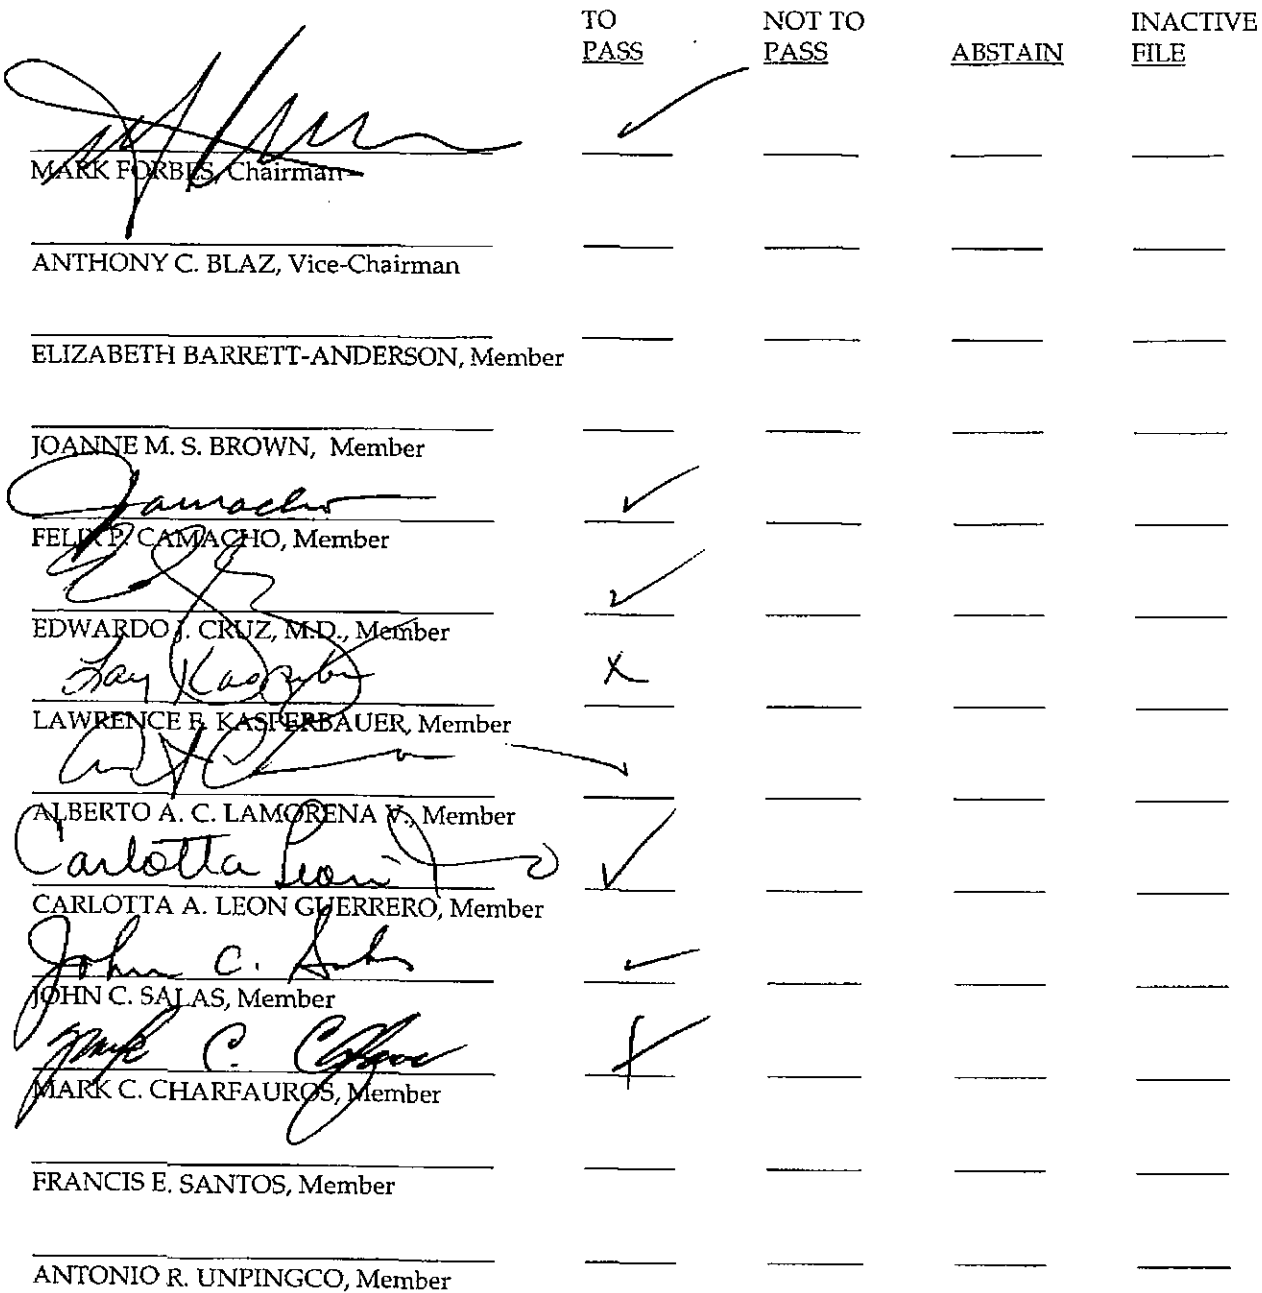 TO NOT TO INACTIVE
PASS PASS ABSTAIN FILE
✓
MARK FORBES, Chairman
ANTHONY C. BLAZ, Vice-Chairman
ELIZABETH BARRETT-ANDERSON, Member
JOANNE M. S. BROWN, Member
Camacho ✓
FELIX P. CAMACHO, Member
✓
EDWARDO J. CRUZ, M.D., Member
X
LAWRENCE F. KASPERBAUER, Member
✓
ALBERTO A. C. LAMORENA V., Member
Carlotta Leon ✓
CARLOTTA A. LEON GUERRERO, Member
John C. Salas ✓
JOHN C. SALAS, Member
Mark C. ✓
MARK C. CHARFAUROS, Member
FRANCIS E. SANTOS, Member
ANTONIO R. UNPINGCO, Member